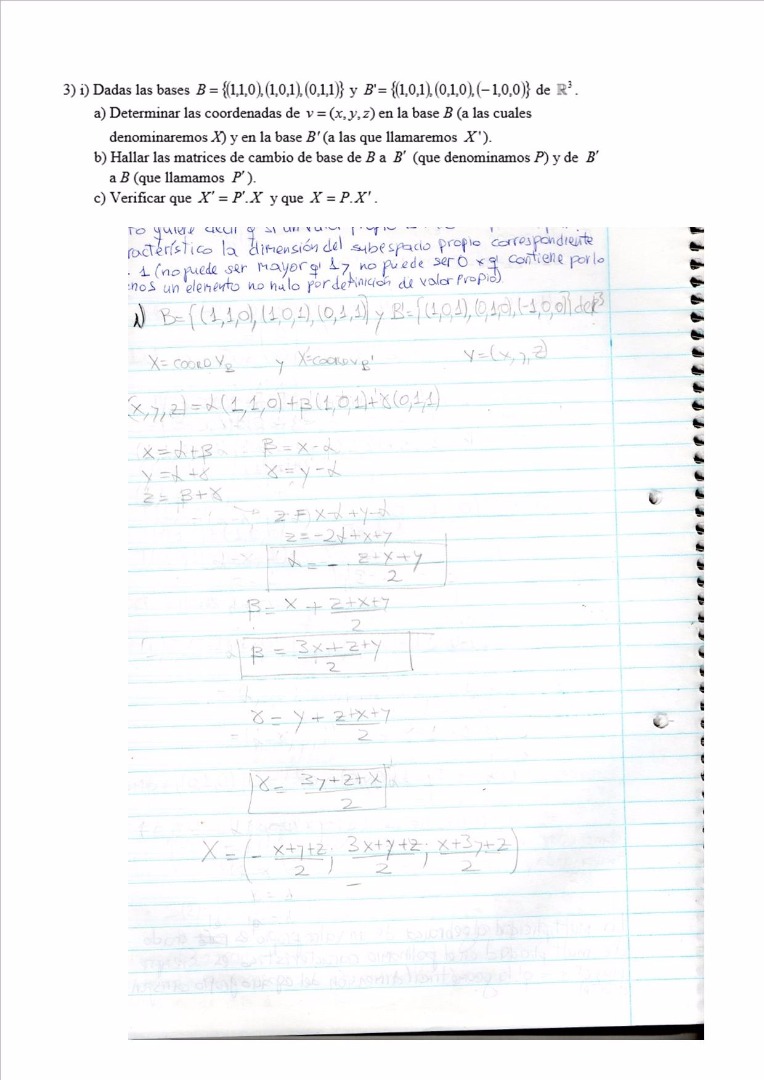 3) i) Dadas las bases B = {(1,1,0),(1,0,1),(0,1,1)} y B'= {(1,0,1),(0,1,0),(−1,0,0)} de ℝ³.
a) Determinar las coordenadas de v = (x, y, z) en la base B (a las cuales
denominaremos X) y en la base B' (a las que llamaremos X').
b) Hallar las matrices de cambio de base de B a B' (que denominamos P) y de B'
a B (que llamamos P').
c) Verificar que X' = P'.X y que X = P.X'.
racterístico la dimensión del subespacio propio correspondiente
. 1 (no puede ser mayor q' 1 y no puede ser 0 xq contiene por lo
nos un elemento no nulo por definición de valor propio)
B={(1,1,0),(1,0,1),(0,1,1)} y B'={(1,0,1),(0,1,0),(-1,0,0)} de ℝ³
X=COORD V_B y X'=COORD V_B' V=(x,y,z)
(x,y,z)=α(1,1,0)+β(1,0,1)+γ(0,1,1)
x=α+β β=x-α
y=α+γ γ=y-α
z=β+γ
z=x-α+y-α
z=-2α+x+y
α=-(z+x+y)/2
β=x+(z+x+y)/2
β=(3x+z+y)/2
γ=y+(z+x+y)/2
γ=(3y+z+x)/2
X=(-(x+y+z)/2; (3x+y+z)/2; (x+3y+z)/2)